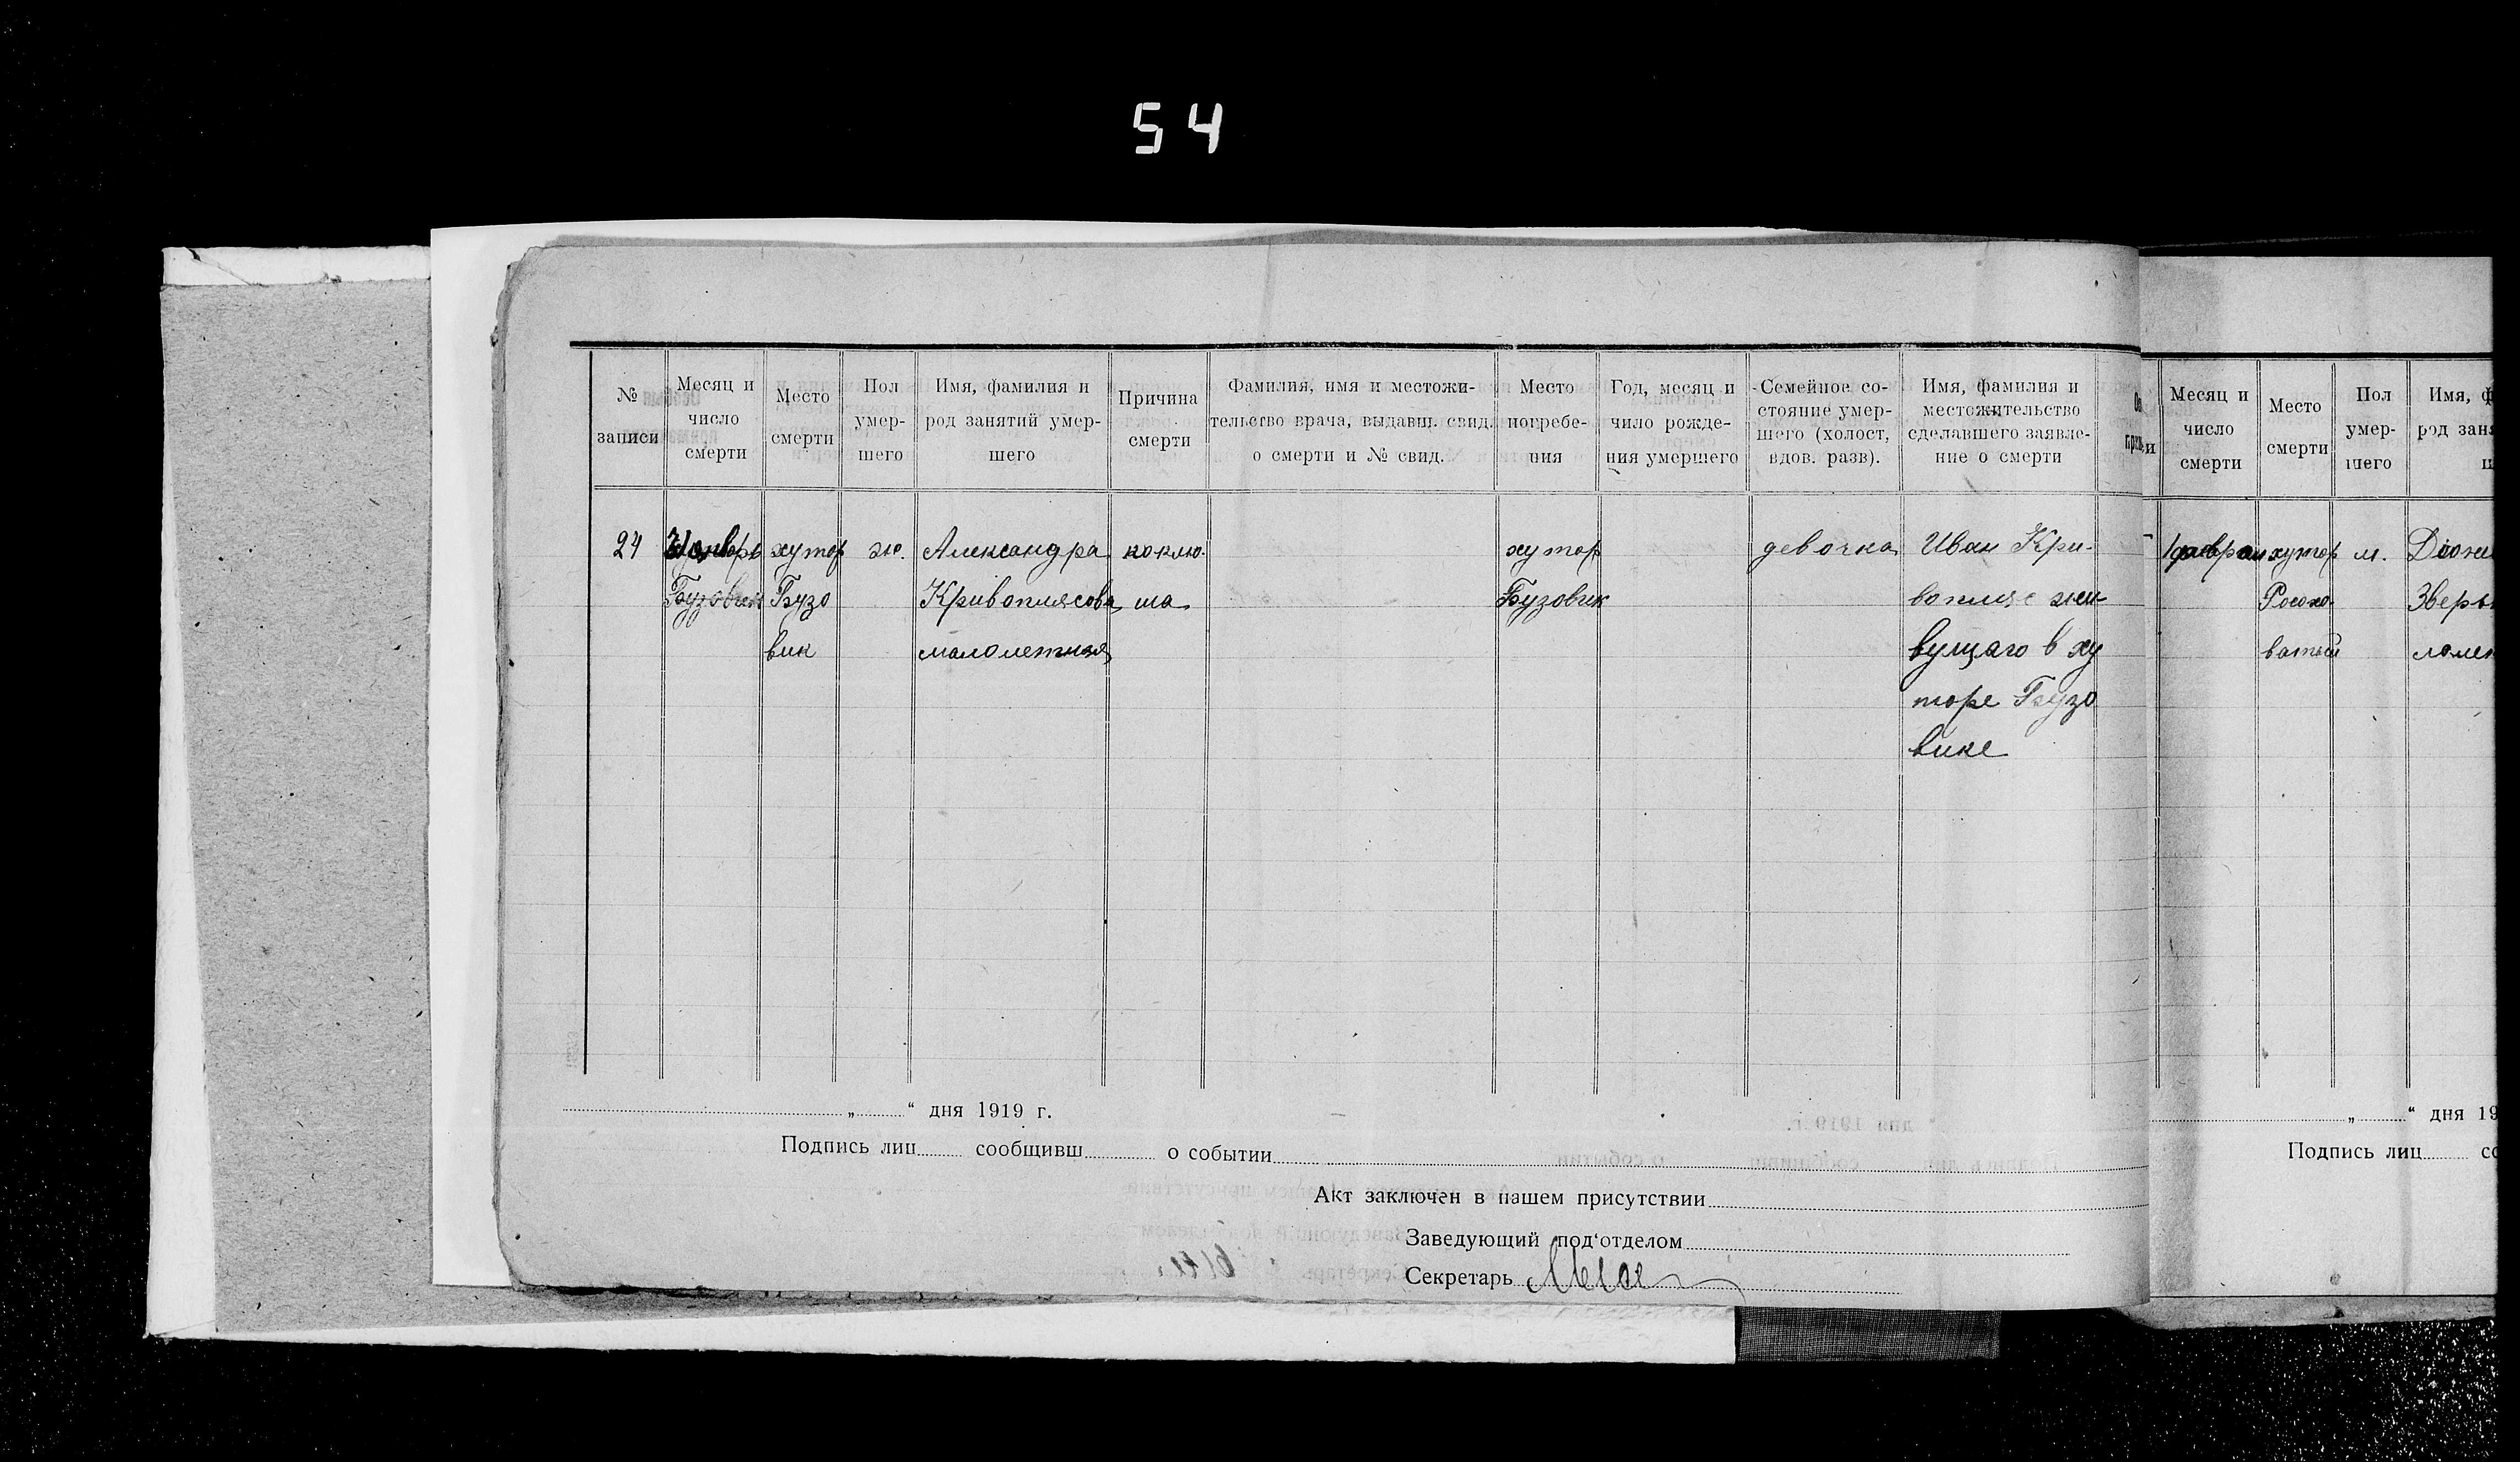 54
№ записи
Месяц и число смерти
Место смерти
Пол умер-шего
Имя, фамилия и род занятий умер-шего
Причина смерти
Фамилия, имя и местожи-тельство врача, выдавш. свид. о смерти и № свид.
Место погребе-ния
Год, месяц и число рожде-ния умершего
Семейное со-стояние умер-шего (холост, вдов. разв).
Имя, фамилия и местожительство сделавшего заявле-ние о смерти
24
январь
Бузовик
хутор
Бузо
вик
ж.
Александра
Кривоплясова
малолетняя
коклю-
ша
хутор
Бузовик
девочка
Иван Кри-
вопляс жи-
вущаго в ху
торе Бузо
вике
„ “ дня 1919 г.
Подпись лиц сообщивш о событии
Акт заключен в нашем присутствии
Заведующий под‘отделом
Секретарь
Месяц и число смерти
Место смерти
Пол умер-шего
Имя, ф
род заня
1 феврал
хутор
Росохо-
ватый
м.
„ “ дня 19
Подпись лиц со